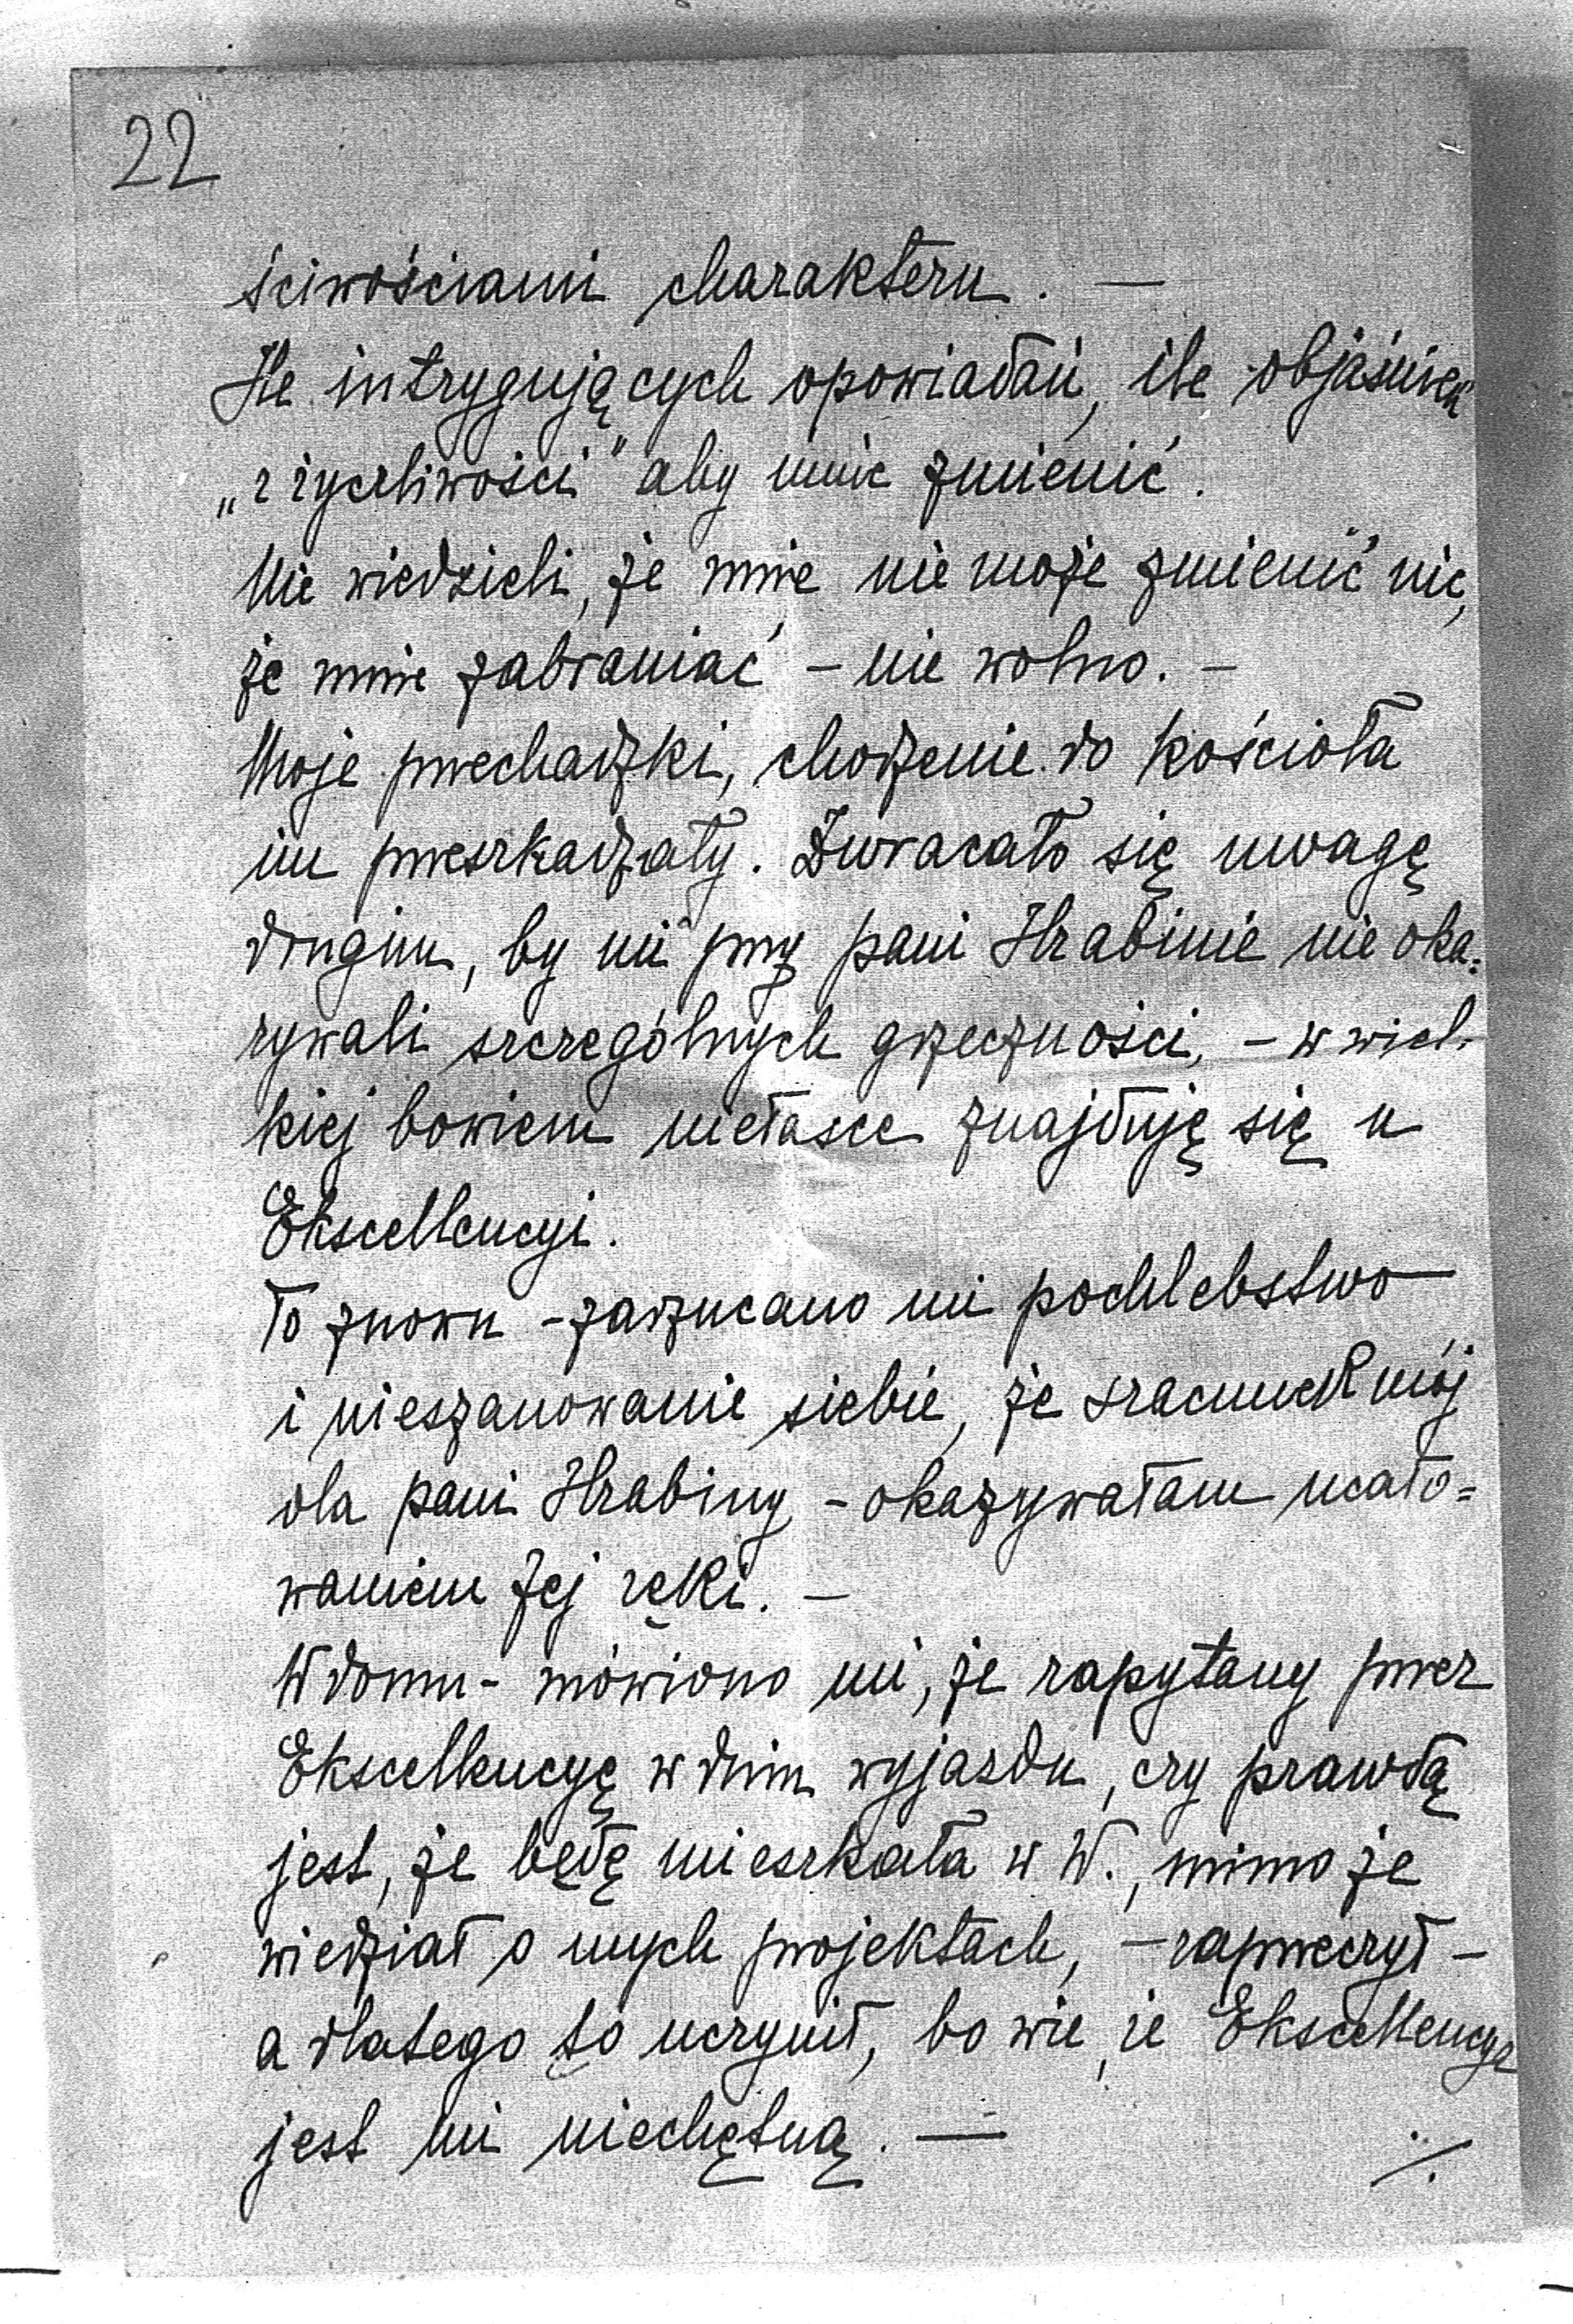 22
ściwościami charakteru. —
Ile intrygujących opowiadań, ile objaśnień
„z życzliwości" aby mnie zmienić.
Nie wiedzieli, że mnie nie może zmienić nic,
że mnie zabraniać – nie wolno. –
Moje przechadzki, chodzenie do kościoła
im przeszkadzały. Zwracało się uwagę
drugim, by mi przy pani Hrabinie nie oka=
zywali szczególnych grzeczności, – w wiel-
kiej bowiem niełasce znajduję się u
Ekscellencyi.
To znowu – zarzucano mi pochlebstwo
i nieszanowanie siebie, że szacunek mój
dla pani Hrabiny – okazywałam ucało=
waniem Jej ręki. –
W domu – mówiono mi, że zapytany przez
Ekscellencyę w dniu wyjazdu, czy prawdą
jest, że będę mieszkała w W., mimo że
wiedział o mych projektach, – zaprzeczył –
a dlatego to uczynił, bo wie, że Ekscellencya
jest mi niechętną. —
./.